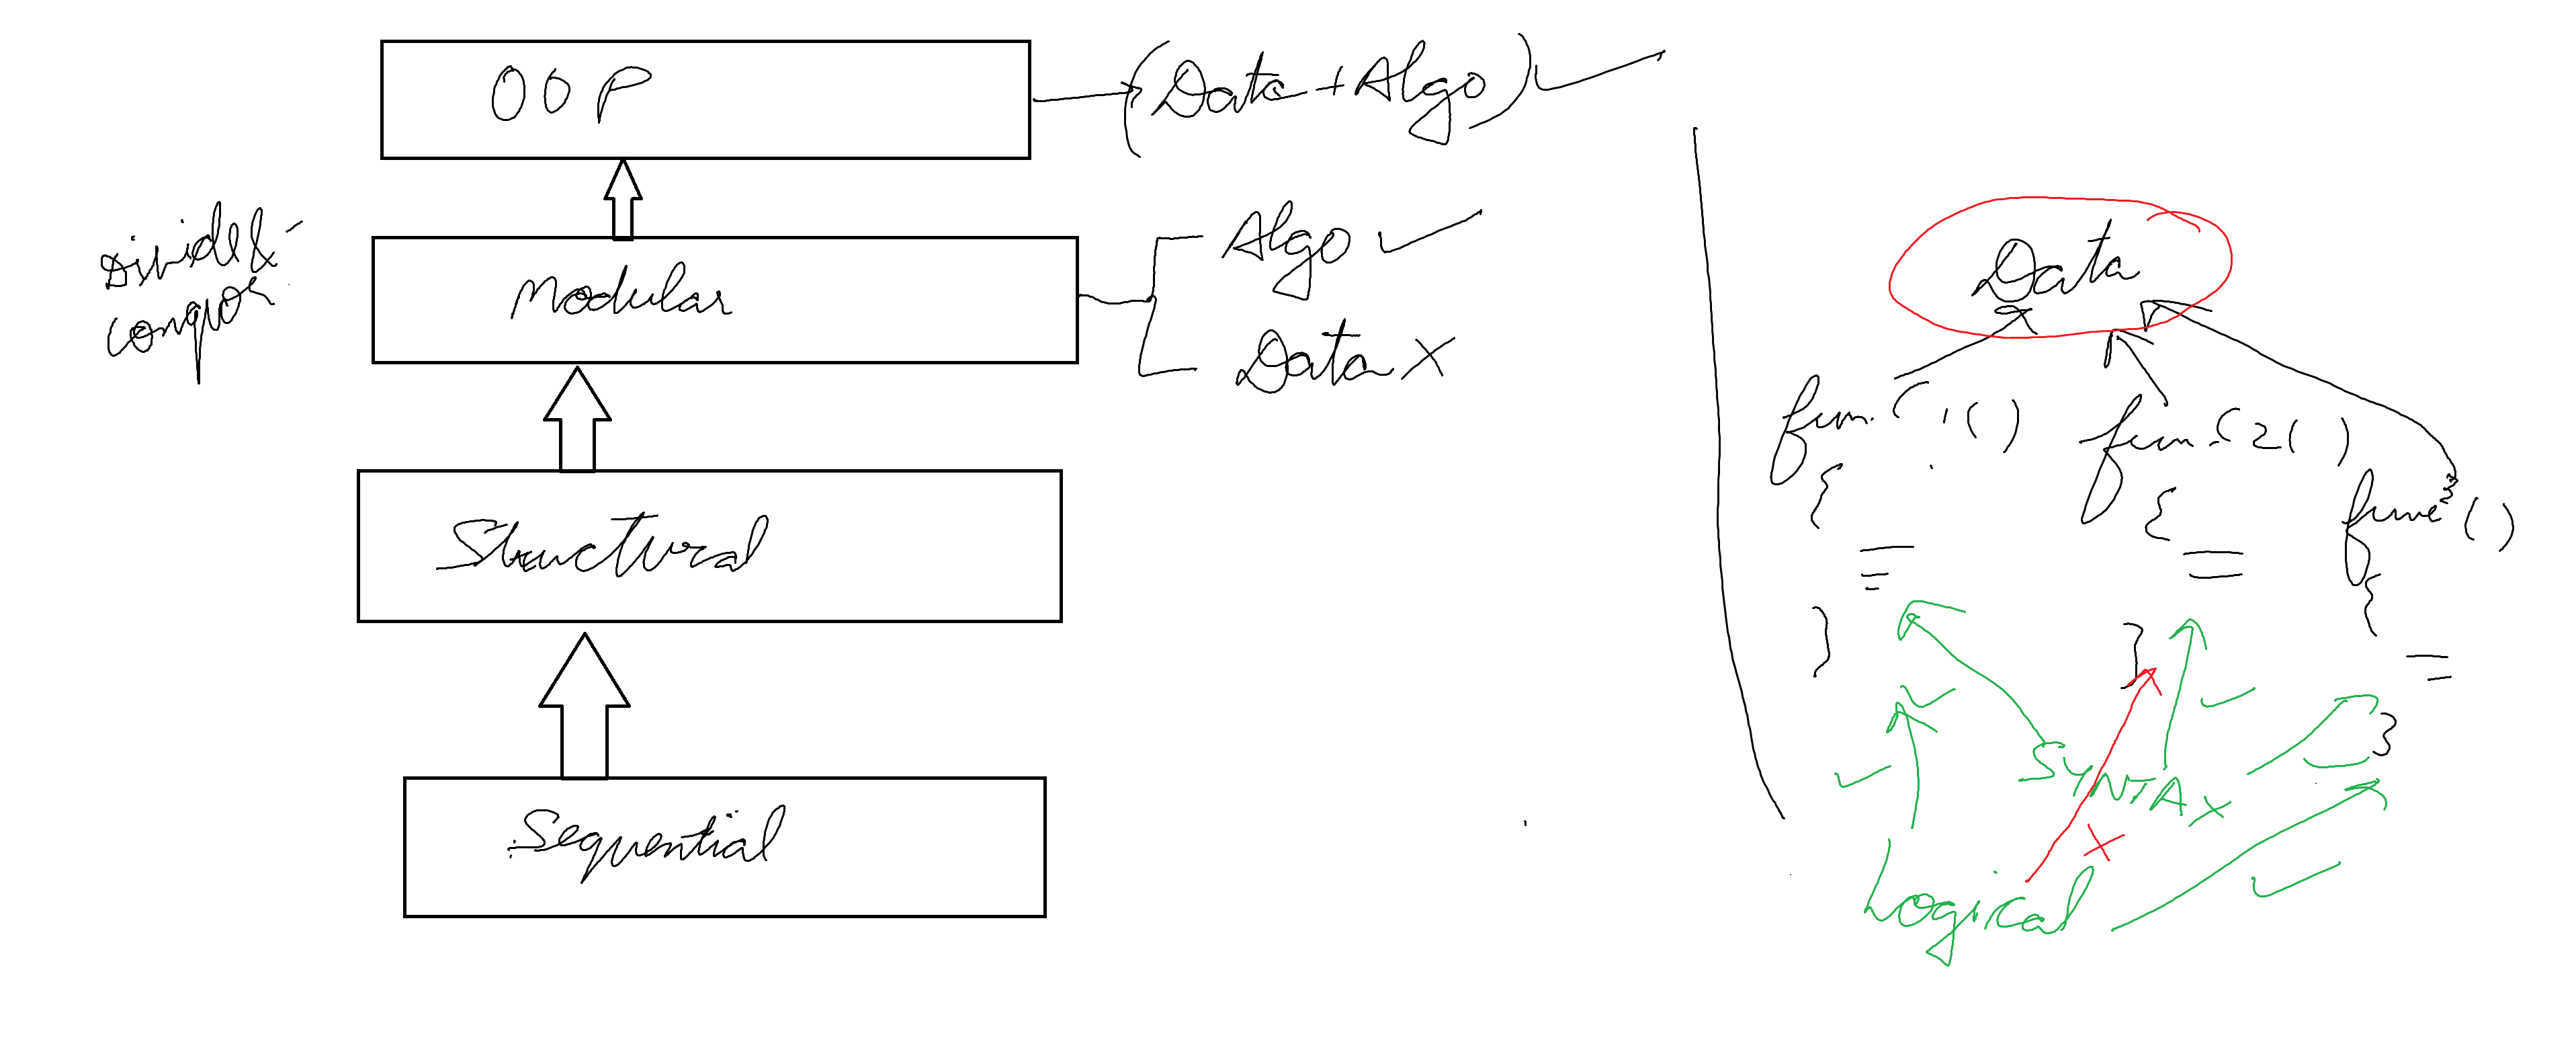 OOP
(Data + Algo) ✓
Divide &
conquor
Modular
Algo ✓
Data ×
Structural
Sequential
Data
func 1()
{
}
func 2()
{
}
func 3()
{
}
SYNTAX
Logical